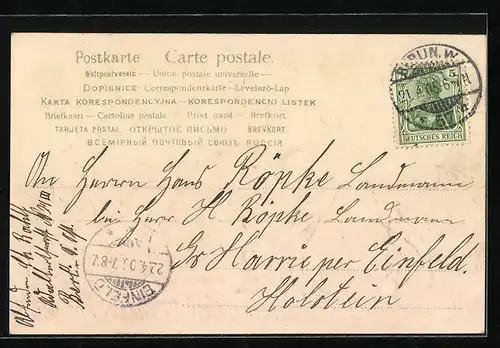 Postkarte Carte postale.
Weltpostverein — Union postale universelle —
DOPISNICE Correspondenzkarte - Levelező-Lap
KARTA KORESPONDENCYJNA — KORESPONDENCNI LISTEK
Briefkaart — Cartolina postale Post card — Brefkort
TARJETA POSTAL ОТКРЫТОЕ ПИСЬМО BREVKORT
ВСЕМІРНЫЙ ПОЧТОВЫЙ СОЮЗЪ РОССІЯ
BERLIN. W.
5
DEUTSCHES REICH
An Herrn Hans Röpke Landmann
bei Herr H Röpke Landmann
Gr Harrie per Einfeld
Holstein
EINFELD
Berlin